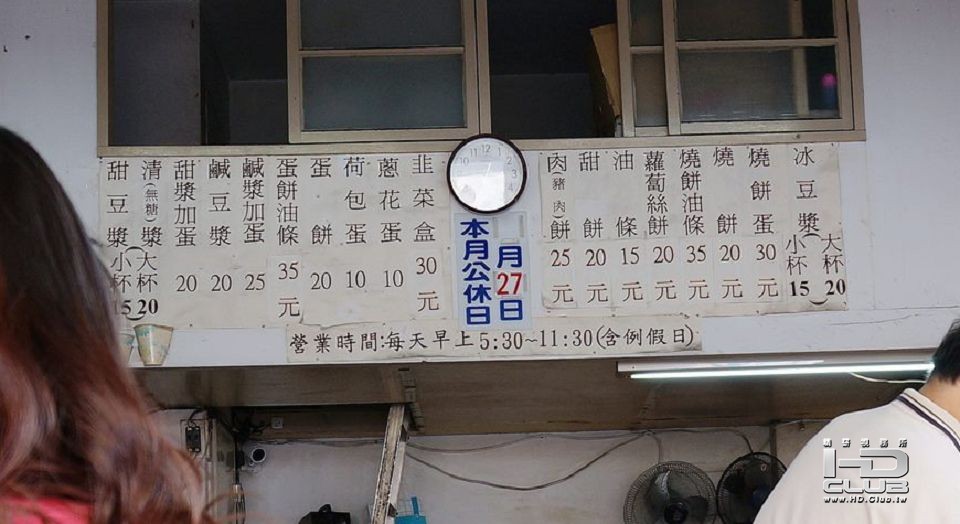 韭菜盒 30元
蔥花蛋 10
荷包蛋 10
蛋餅 20
蛋餅油條 35元
鹹漿加蛋 25
鹹豆漿 20
甜漿加蛋 20
清(無糖)漿
甜豆漿
大杯 20
小杯 15
12
11
10
1
2
3
4
本月公休日
月27日
冰豆漿
大杯 20
小杯 15
燒餅蛋 30元
燒餅 20元
燒餅油條 35元
蘿蔔絲餅 20元
油條 15元
甜餅 20元
肉(豬肉)餅 25元
營業時間:每天早上5:30~11:30(含例假日)
HD
CLUB
www.HD.Club.tw